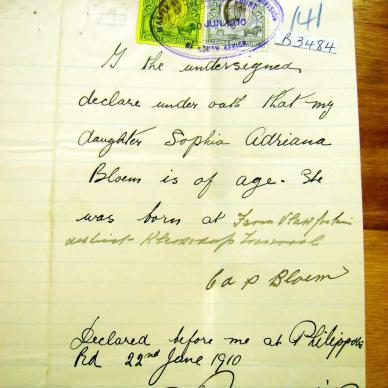 JUN 1910
OF SOUTH AFRICA
141
B3484
I the undersigned
declare under oath that my
daughter Sophia Adriana
Bloem is of age. She
was born at Farm
district Klerksdorp Transvaal
Bloem
Declared before me at Philippolis
Rd 22nd June 1910